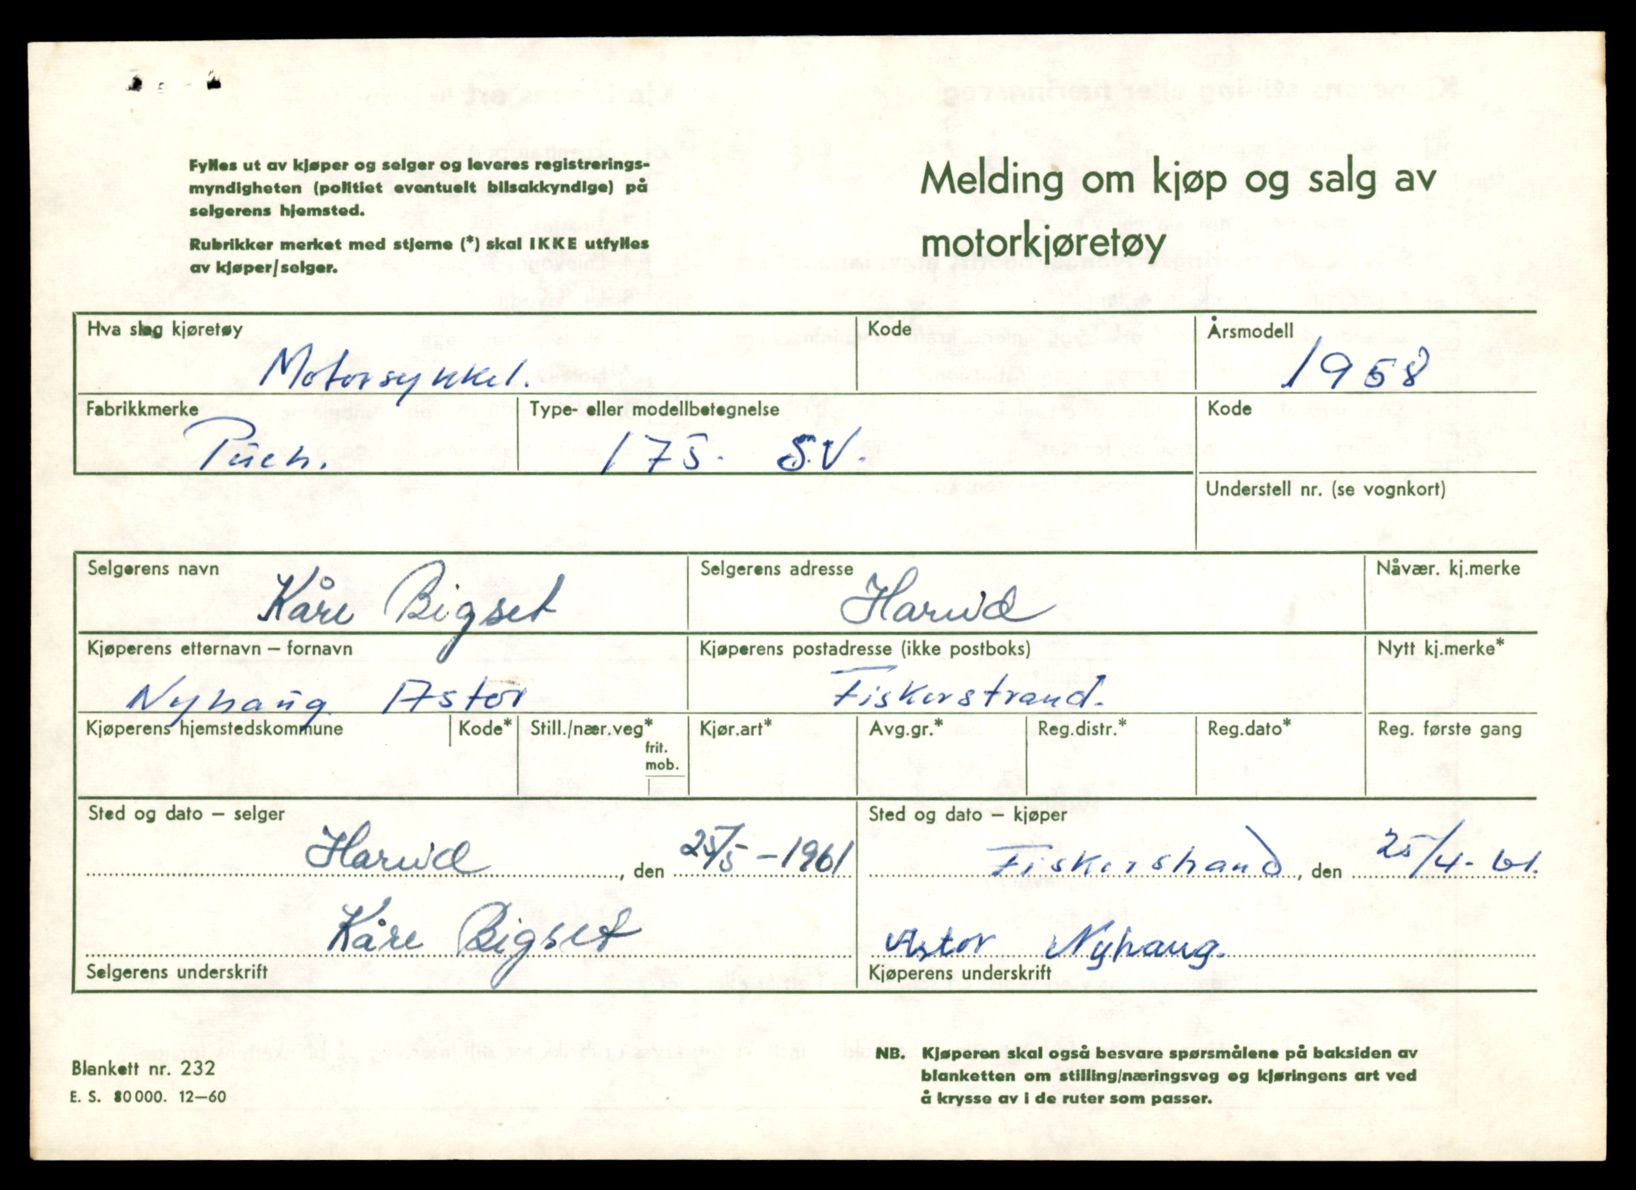 Fylles ut av kjøper og selger og leveres registrerings-
myndigheten (politiet eventuelt bilsakkyndige) på
selgerens hjemsted.
Rubrikker merket med stjerne (*) skal IKKE utfylles
av kjøper/selger.
Melding om kjøp og salg av
motorkjøretøy
Hva slag kjøretøy
Motorsykkel.
Kode
Årsmodell
1958
Fabrikkmerke
Puch.
Type- eller modellbetegnelse
175. S.V.
Kode
Understell nr. (se vognkort)
Selgerens navn
Kåre Bigset
Selgerens adresse
Hareid
Nåvær. kj.merke
Kjøperens etternavn – fornavn
Nyhaug Astor
Kjøperens postadresse (ikke postboks)
Fiskerstrand.
Nytt kj.merke*
Kjøperens hjemstedskommune
Kode*
Still./nær.veg*
frit.
mob.
Kjør.art*
Avg.gr.*
Reg.distr.*
Reg.dato*
Reg. første gang
Sted og dato – selger
Hareid, den 25/5-1961
Kåre Bigset
Selgerens underskrift
Sted og dato – kjøper
Fiskerstrand, den 25/4-61.
Astor Nyhaug.
Kjøperens underskrift
Blankett nr. 232
E. S. 80000. 12–60
NB. Kjøperen skal også besvare spørsmålene på baksiden av
blanketten om stilling/næringsveg og kjøringens art ved
å krysse av i de ruter som passer.